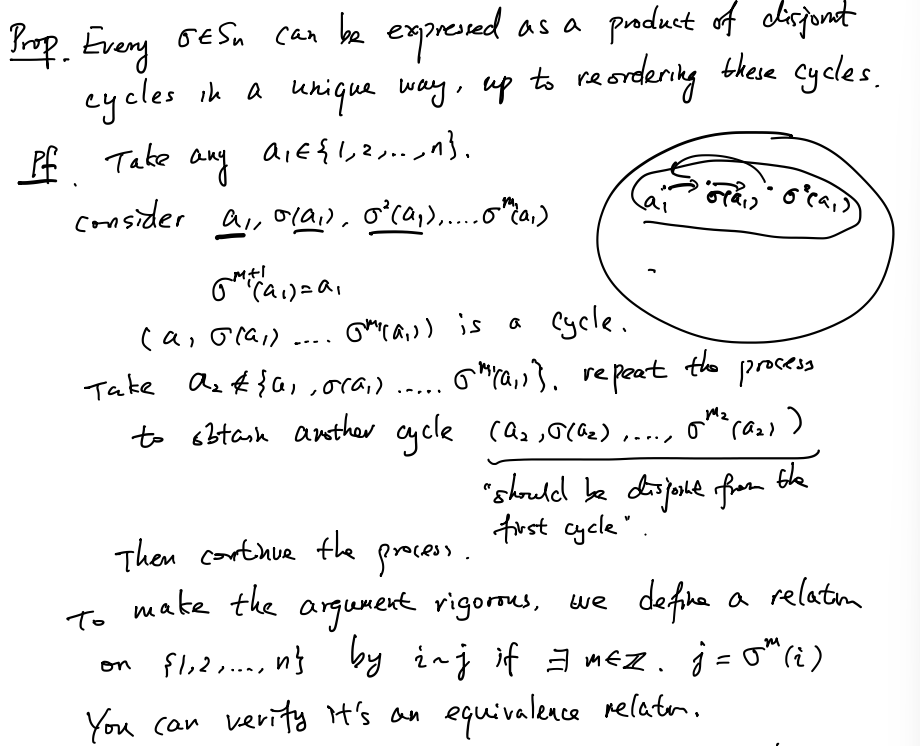 Prop. Every σ∈Sn can be expressed as a product of disjoint
cycles in a unique way, up to reordering these cycles.
Pf. Take any a₁∈{1,2,..,n}.
consider a₁, σ(a₁), σ²(a₁),....σ^{m₁}(a₁)
a₁ σ(a₁) σ²(a₁)
σ^{m₁+1}(a₁)=a₁
(a₁ σ(a₁) .... σ^{m₁}(a₁)) is a cycle.
Take a₂∉{a₁,σ(a₁) ..... σ^{m₁}(a₁)}. repeat the process
to obtain another cycle (a₂,σ(a₂),...., σ^{m₂}(a₂))
"should be disjoint from the
first cycle".
Then continue the process.
To make the argument rigorous, we define a relation
on {1,2,...,n} by i~j if ∃ m∈ℤ. j=σ^m(i)
You can verify it's an equivalence relation.